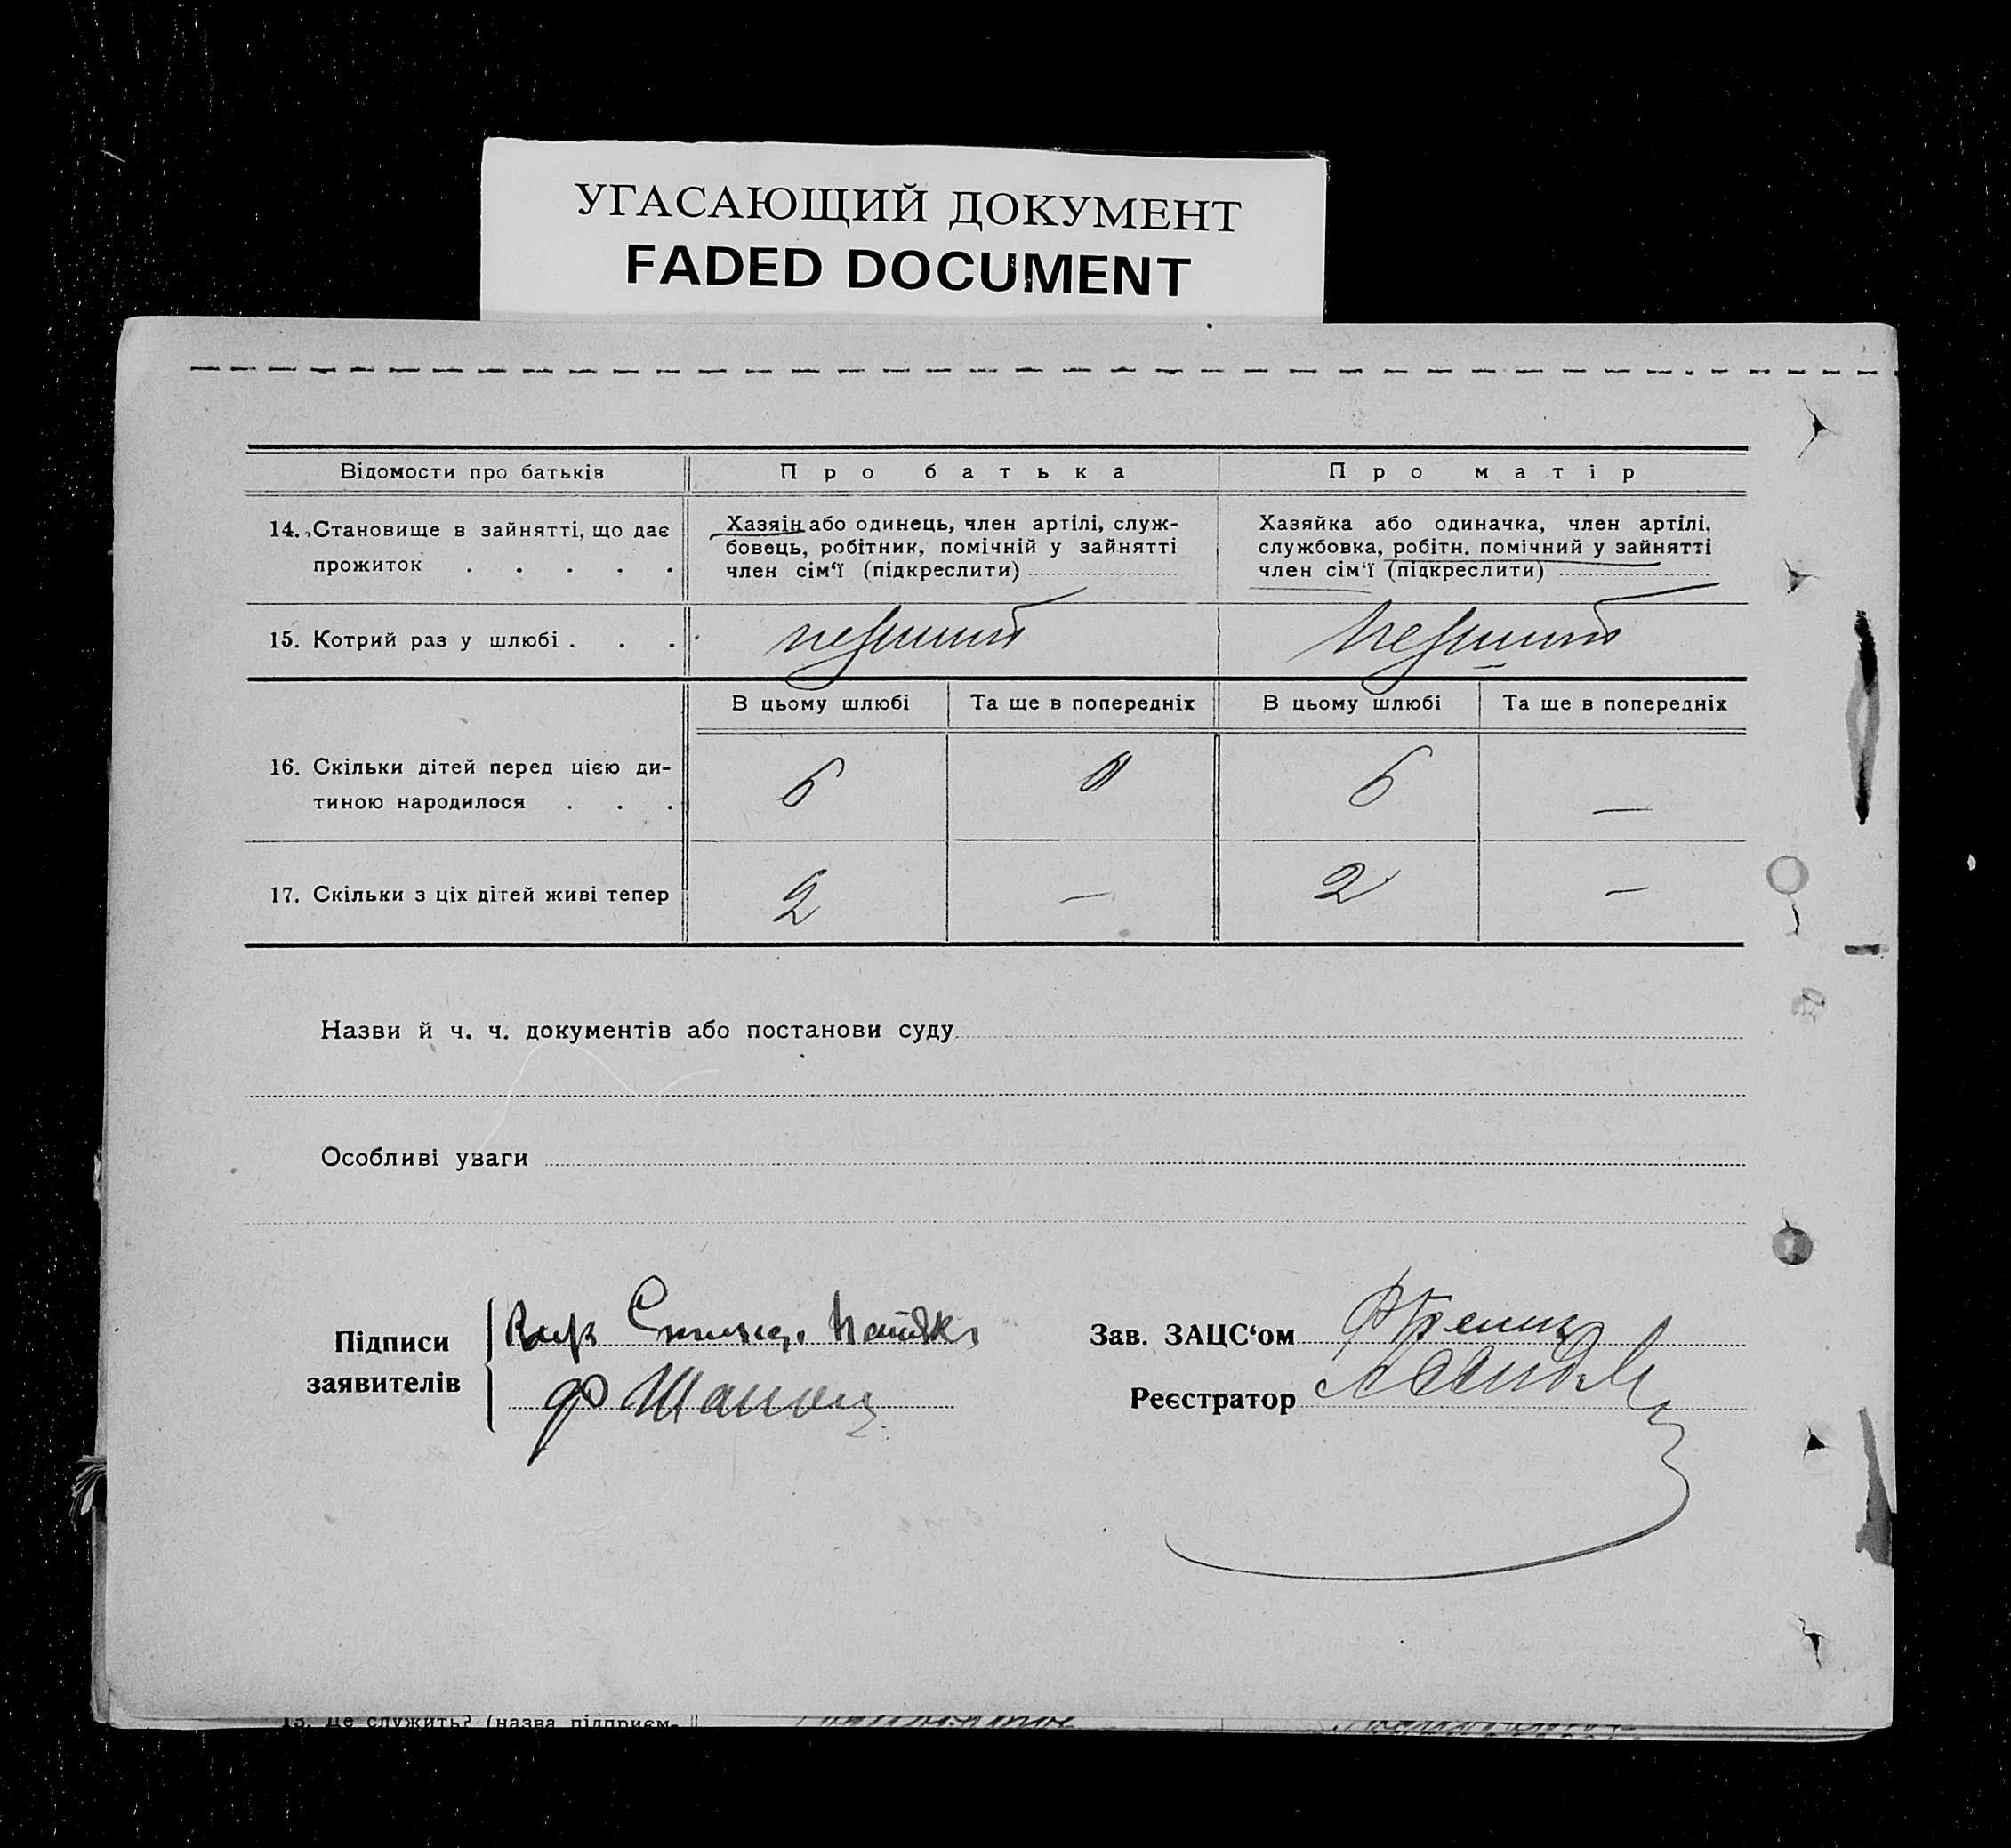 УГАСАЮЩИЙ ДОКУМЕНТ
FADED DOCUMENT
Відомости про батьків
Про батька
Про матір
14. Становище в зайнятті, що дає
прожиток . . . . .
Хазяін або одинець, член артілі, служ-
бовець, робітник, помічній у зайнятті
член сім‘ї (підкреслити)
Хазяйка або одиначка, член артілі,
службовка, робітн. помічний у зайнятті
член сім‘ї (підкреслити)
15. Котрий раз у шлюбі . . .
первший
первший
В цьому шлюбі
Та ще в попередніх
В цьому шлюбі
Та ще в попередніх
16. Скільки дітей перед цією ди-
тиною народилося . . .
6
6
—
17. Скільки з ціх дітей живі тепер
2
—
2
—
Назви й ч. ч. документів або постанови суду
Особливі уваги
Підписи
заявителів
Зав. ЗАЦС‘ом
Реєстратор
13. Де служить? (назва підприєм-